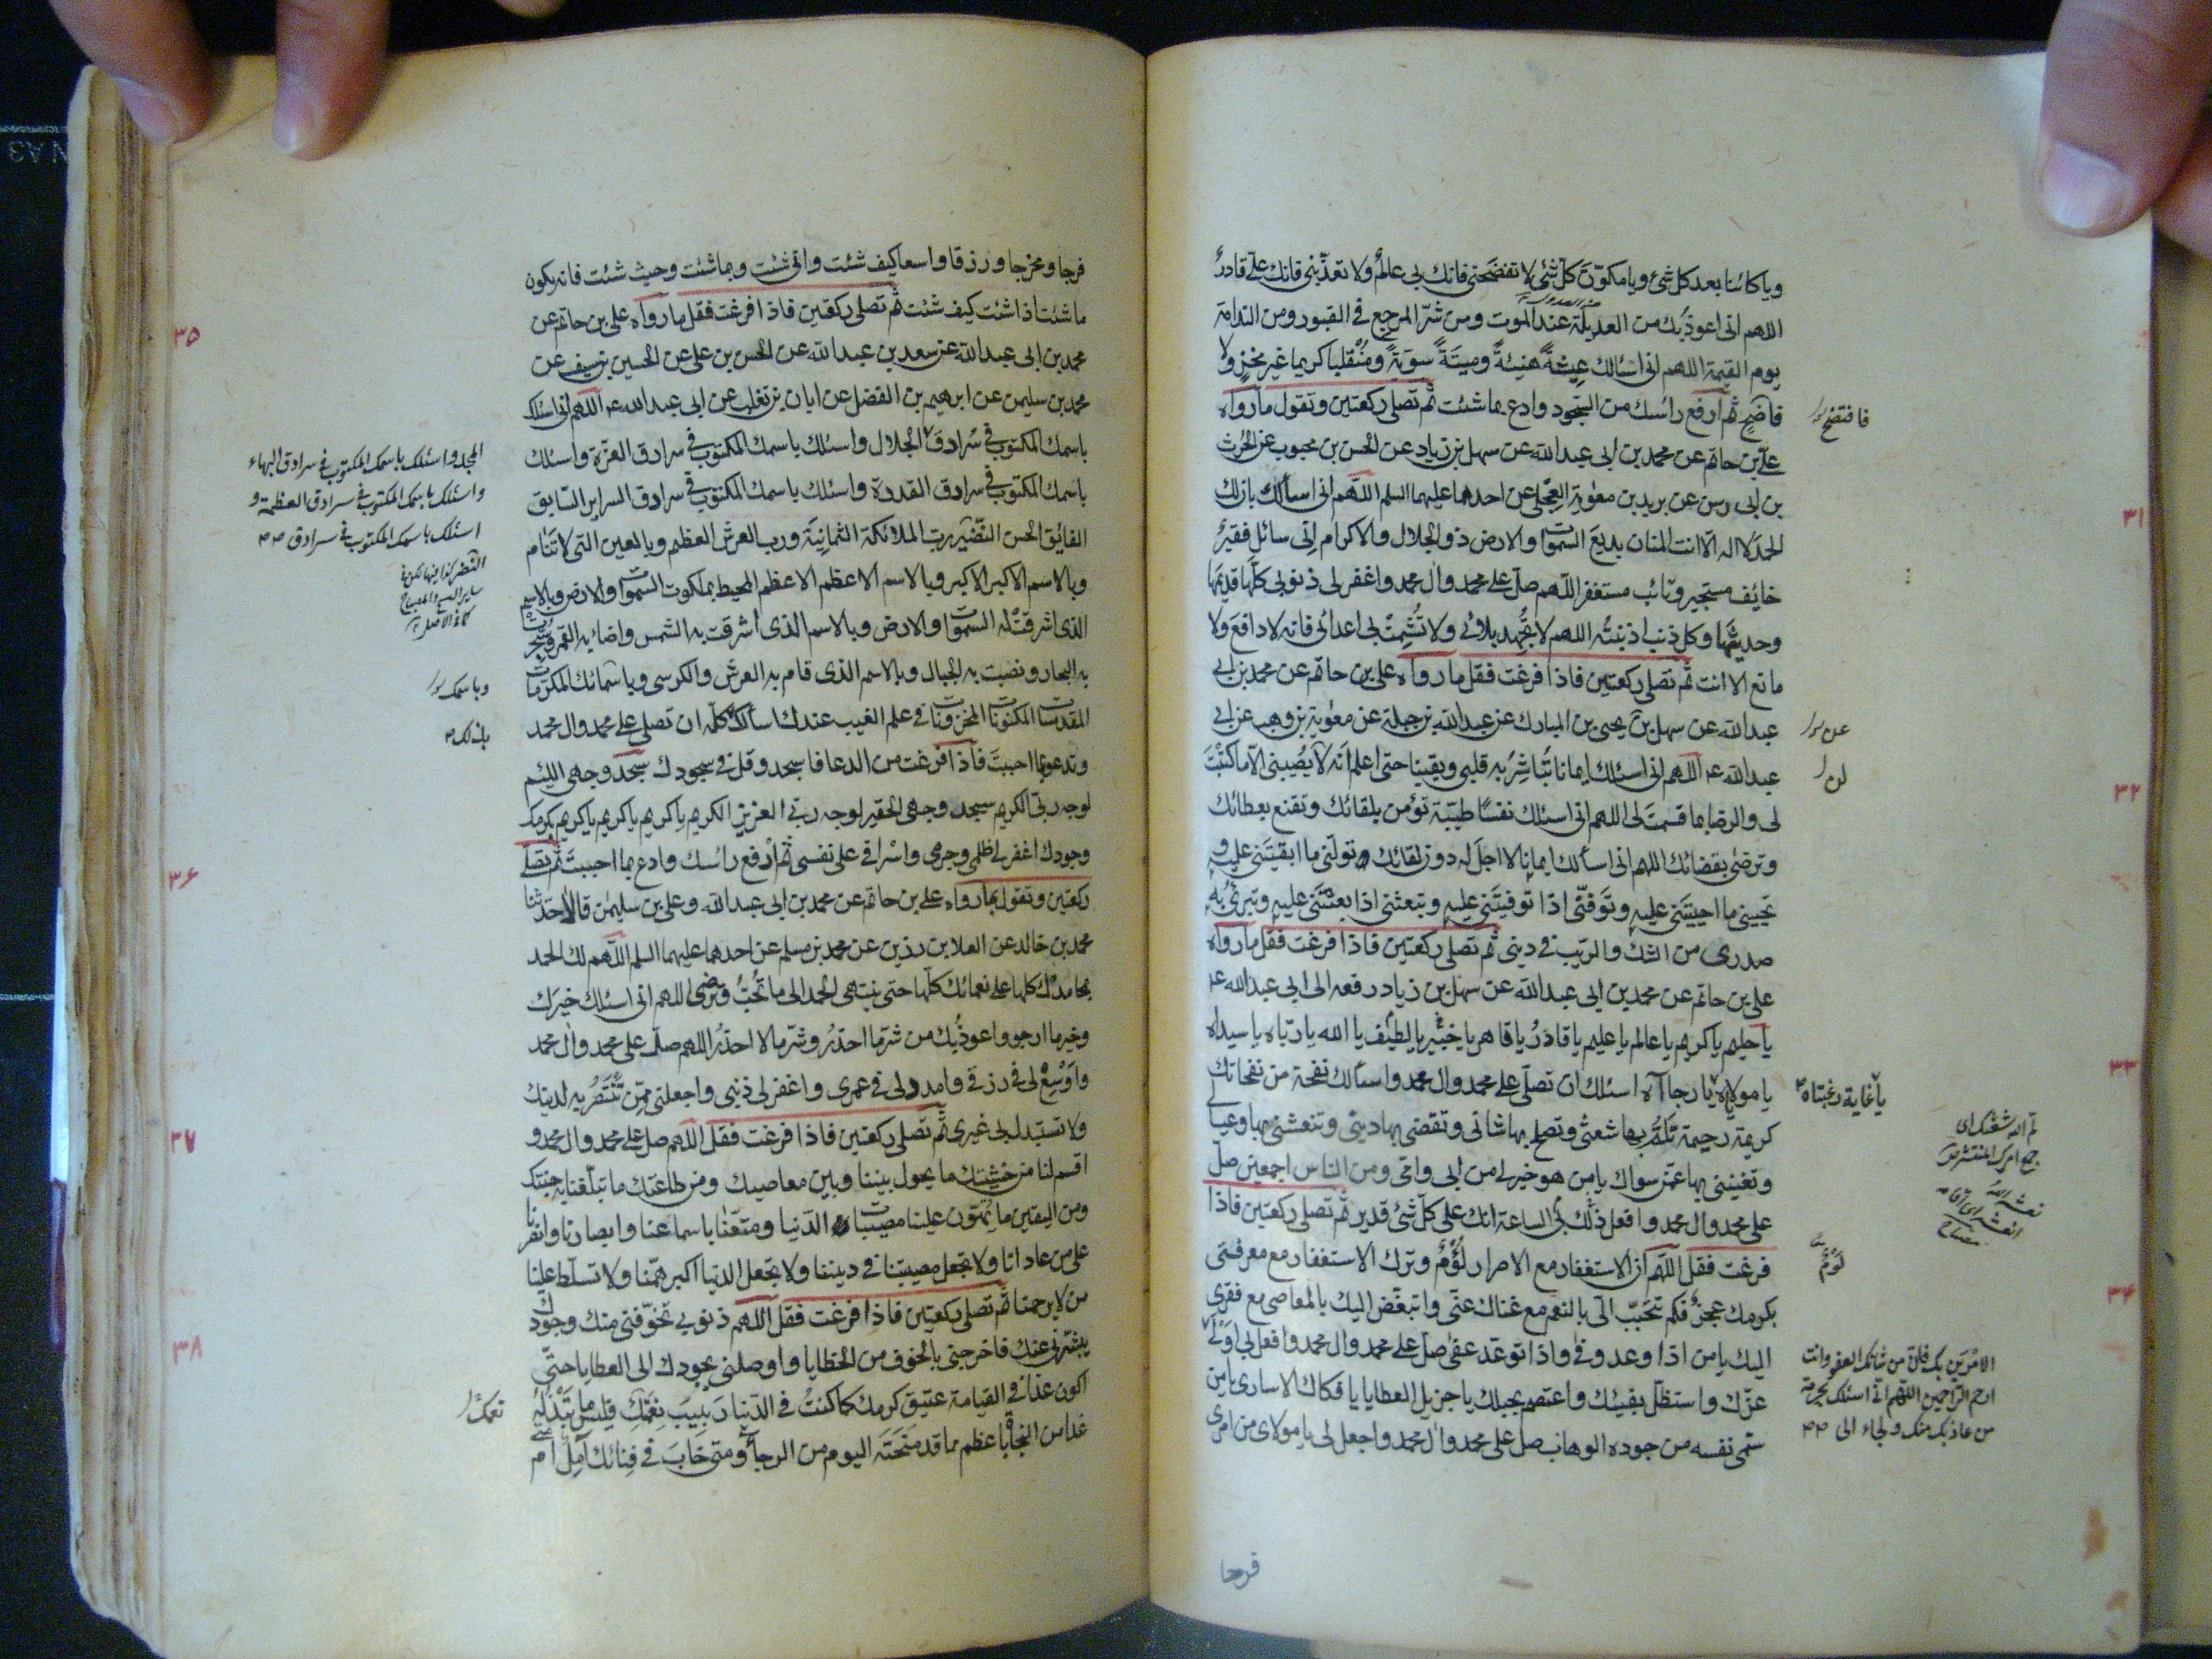 وياكائنا بعد كل شئ ويا مكوّن كلّ شئ لا تفضحنى فانك بى عالم ولا تعذّبنى فانك علىّ قادر
اللهم انى اعوذ بك من العديلة عند الموت ومن شرّ المرجع فى القبور ومن الندامة
يوم القيمة اللهم انى اسئلك عيشة هنيئة وميتة سويّة ومنقلبا كريما غير مخز ولا
فاضح ثم ارفع رأسك من السّجود وادع بما شئت ثم تصلى ركعتين وتقول ما رواه
علىّ بن حاتم عن محمد بن ابى عبد الله عن سهل بن زياد عن الحسن بن محبوب عن الحرث
بن ابى رسن عن بريد بن معوية العجلى عن احدهما عليهما السلم اللّهم انى اسألك بان لك
الحمد لا اله الّا انت المنان بديع السموات والارض ذو الجلال والاكرام انى سائل فقير
خائف مستجير وتائب مستغفر اللّهم صلّ على محمد وال محمد واغفر لى ذنوبى كلّها قديمها
وحديثها وكل ذنب اذنبته اللهم لا تجهد بلائى ولا تشمت بى اعدائى فانه لا دافع ولا
مانع الا انت ثم تصلى ركعتين فاذا فرغت فقل ما رواه على بن حاتم عن محمد بن ابى
عبد الله عن سهل بن يحيى بن المبارك عن عبد الله بن جبلة عن معوية بن وهب عن ابى
عبد الله ع اللّهم انى اسئلك ايمانا تباشر به قلبى ويقينا حتى اعلم انه لا يصيبنى الّا ما كتبت
لى والرضا بما قسمت لى اللهم انى اسئلك نفسا طيّبة تؤمن بلقائك وتقنع بعطائك
وترضى بقضائك اللهم انى اسألك ايمانا لا اجل له دون لقائك تولّنى ما ابقيتنى عليه و
تحيينى ما احييتنى عليه وتوفّنى اذا توفيتنى عليه وتبعثنى اذا بعثتنى عليه وتبرئ به
صدرى من الشك والرّيب فى دينى ثم تصلى ركعتين فاذا فرغت فقل ما رواه
على بن حاتم عن محمد بن ابى عبد الله عن سهل بن زياد رفعه الى ابى عبد الله ع
يا حليم يا كريم يا عالم يا عليم يا قادر يا قاهر يا خبير يا لطيف يا الله يا ربّاه يا سيداه
يا مولاه يا رجاآه اسئلك ان تصلّى على محمد وال محمد واسألك نفحة من نفحاتك
كريمة رحيمة تلمّ بها شعثى وتصلح بها شانى وتقضى بها دينى وتنعشنى بها وعيالى
وتغنينى بها عمّن سواك يا من هو خير لى من ابى وامّى ومن الناس اجمعين صلّ
على محمد وال محمد وافعل ذلك بى الساعة انك على كلّ شئ قدير ثم تصلى ركعتين فاذا
فرغت فقل اللّهم ان الاستغفار مع الاصرار لؤم وترك الاستغفار مع معرفتى
بكرمك عجز فكم تتحبّب الىّ بالنعم مع غناك عنّى واتبغّض اليك بالمعاصى مع فقرى
اليك يا من اذا وعد وفى واذا توعّد عفى صلّ على محمد وال محمد وافعل بى اولى
عزّك واستظلّ بفيئك واعتصم بحبلك يا جزيل العطايا يا فكاك الاسارى يا من
سمّى نفسه من جوده الوهاب صلّ على محمد وال محمد واجعل لى يا مولاى من امرى
فرجا
فافتضح
عن
لن
يا غاية رغبتاه
لم الله شعثك اى
نعشه الله
لؤم
الامرين بك فان من شانك العفو وانت
ارحم الرّاحمين اللّهم انى اسئلك بحرمة
من عاذ بك منك ولجاء الى
۳۱
۳۲
۳۳
۳۴
فرجا ومخرجا ورزقا واسعا كيف شئت وانّى شئت وبما شئت وحيث شئت فانه يكون
ما شئت اذا شئت كيف شئت ثم تصلى ركعتين فاذا فرغت فقل ما رواه على بن حاتم عن
محمد بن ابى عبد الله عن سعد بن عبد الله عن الحسن بن على عن الحسين بن سيف عن
محمد بن سليمن عن ابرهيم بن الفضل عن ابان بن تغلب عن ابى عبد الله ع اللّهم انى اسئلك
باسمك المكتوب فى سرادق الجلال واسئلك باسمك المكتوب فى سرادق العزّة واسئلك
باسمك المكتوب فى سرادق القدرة واسئلك باسمك المكتوب فى سرادق السراير السّابق
الفائق الحسن النّضير ربّ الملائكة الثمانية ورب العرش العظيم وبالعين التى لا تنام
وبالاسم الاكبر الاكبر وبالاسم الاعظم الاعظم المحيط بملكوت السموات والارض وبالاسم
الذى اشرقت له السموات والارض وبالاسم الذى اشرقت به الشمس واضاء به القمر وسجرت
به البحار ونصبت به الجبال وبالاسم الذى قام به العرش والكرسى وباسمائك المكرّمات
المقدسات المكنونات المخزونات فى علم الغيب عندك اسألك كلّه ان تصلى على محمد وال محمد
وتدعو بما احببت فاذا فرغت من الدعا فاسجد وقل فى سجودك سجد وجهى اللئيم
لوجه ربّى الكريم سجد وجهى الحقير لوجه ربّى العزيز الكريم يا كريم يا كريم يا كريم بكرمك
وجودك اغفر لى ظلمى وجرمى واسرافى على نفسى ثم ارفع رأسك وادع بما احببت ثم تصلى
ركعتين وتقول ما رواه على بن حاتم عن محمد بن ابى عبد الله وعلى بن سليمن قالا حدثنا
محمد بن خالد عن العلا بن رزين عن محمد بن مسلم عن احدهما عليهما السلم اللّهم لك الحمد
بمحامدك كلها على نعمائك كلّها حتى ينتهى الحمد الى ما تحبّ وترضى اللهم انى اسئلك خيرك
وخير ما ارجو واعوذ بك من شرّ ما احذر وشرّ ما لا احذر اللهم صلّ على محمد وال محمد
واوسع لى فى رزقى وامدد لى فى عمرى واغفر لى ذنبى واجعلنى ممّن تنتصر به لدينك
ولا تستبدل بى غيرى ثم تصلى ركعتين فاذا فرغت فقل اللّهم صل على محمد وال محمد و
اقسم لنا من خشيتك ما يحول بيننا وبين معاصيك ومن طاعتك ما تبلّغنا به جنتك
ومن اليقين ما يهوّن علينا مصيبات الدّنيا ومتّعنا باسماعنا وابصارنا وانصرنا
على من عادانا ولا تجعل مصيبتنا فى ديننا ولا تجعل الدنيا اكبر همّنا ولا تسلّط علينا
من لا يرحمنا ثم تصلى ركعتين فاذا فرغت فقل اللهم ذنوبى تخوّفنى منك وجودك
يبشّرنى عنك فاخرجنى بالخوف من الخطايا واوصلنى بجودك الى العطايا حتّى
اكون غدا فى القيامة عتيق كرمك كما كنت فى الدّنيا ربيب نعمك فليس ما تبذله
غدا من النجاء باعظم مما قد منحته اليوم من الرجاء ومتى خاب فى فنائك آمل ام
المجد واسئلك باسمك المكتوب فى سرادق البهاء
واسئلك باسمك المكتوب فى سرادق العظمة و
اسئلك باسمك المكتوب فى سرادق
وباسمك
بذلك
نعمك
۳۵
۳۶
۳۷
۳۸